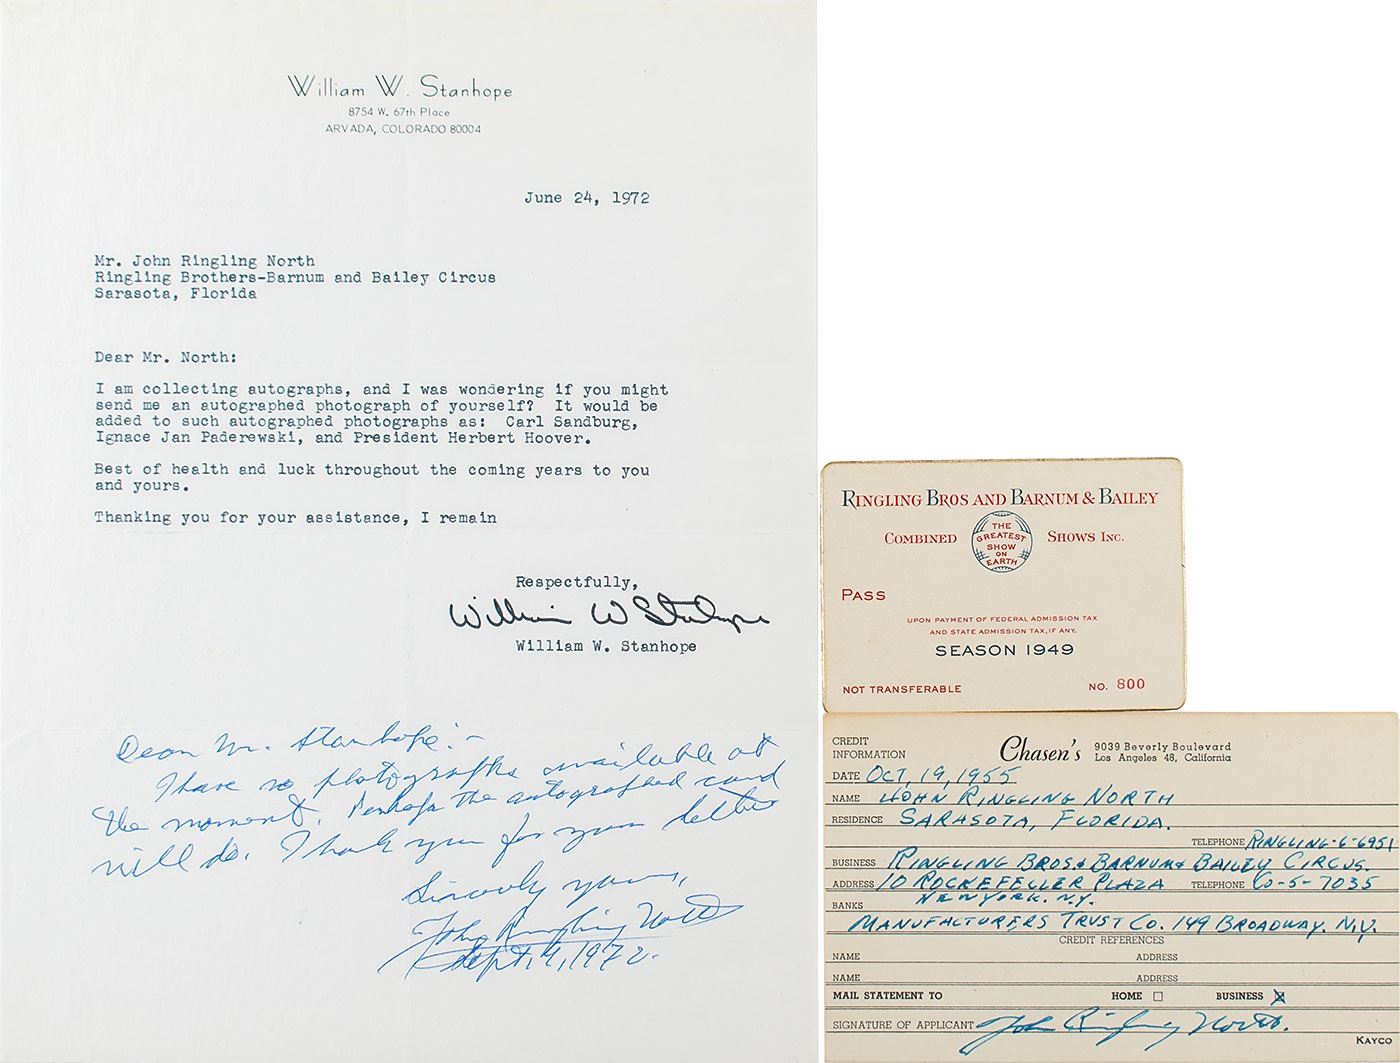 William W. Stanhope
8754 W. 67th Place
ARVADA, COLORADO 80004
June 24, 1972
Mr. John Ringling North
Ringling Brothers-Barnum and Bailey Circus
Sarasota, Florida
Dear Mr. North:
I am collecting autographs, and I was wondering if you might
send me an autographed photograph of yourself? It would be
added to such autographed photographs as: Carl Sandburg,
Ignace Jan Paderewski, and President Herbert Hoover.
Best of health and luck throughout the coming years to you
and yours.
Thanking you for your assistance, I remain
Respectfully,
William W Stanhope
William W. Stanhope
Dear Mr. Stanhope:-
I have no photographs available at
the moment. Perhaps the autographed card
will do. Thank you for your letter
Sincerely yours,
John Ringling North
Sept. 9, 1972.
RINGLING BROS AND BARNUM & BAILEY
COMBINED
THE
GREATEST
SHOW
ON
EARTH
SHOWS INC.
PASS
UPON PAYMENT OF FEDERAL ADMISSION TAX
AND STATE ADMISSION TAX, IF ANY.
SEASON 1949
NOT TRANSFERABLE NO. 800
CREDIT
INFORMATION
Chasen's
9039 Beverly Boulevard
Los Angeles 48, California
DATE OCT, 19, 1955
NAME JOHN RINGLING NORTH
RESIDENCE SARASOTA, FLORIDA.
TELEPHONE RINGLING-6-6951
BUSINESS RINGLING BROS. & BARNUM & BAILEY CIRCUS.
ADDRESS 10 ROCKEFELLER PLAZA TELEPHONE CO-5-7035
NEW YORK. N.Y.
BANKS
MANUFACTURERS TRUST CO. 149 BROADWAY. N.Y.
CREDIT REFERENCES
NAME ADDRESS
NAME ADDRESS
MAIL STATEMENT TO HOME BUSINESS X
SIGNATURE OF APPLICANT John Ringling North.
KAYCO